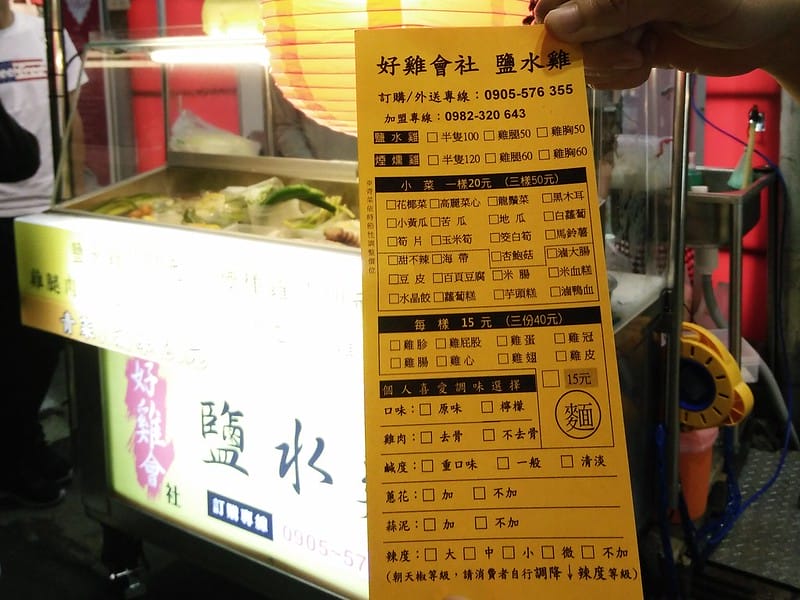 好雞會社 鹽水雞
訂購/外送專線：0905-576 355
加盟專線：0982-320 643
鹽水雞 □半隻100 □雞腿50 □雞胸50
煙燻雞 □半隻120 □雞腿60 □雞胸60
小菜 一樣20元 (三樣50元)
□花椰菜 □高麗菜心 □龍鬚菜 □黑木耳
□小黃瓜 □苦瓜 □地瓜 □白蘿蔔
□筍片 □玉米筍 □茭白筍 □馬鈴薯
□甜不辣 □海帶 □杏鮑菇 □滷大腸
□豆皮 □百頁豆腐 □米腸 □米血糕
□水晶餃 □蘿蔔糕 □芋頭糕 □滷鴨血
※青菜依時節性調整價位
每樣 15 元 (三份40元)
□雞胗 □雞屁股 □雞蛋 □雞冠
□雞腸 □雞心 □雞翅 □雞皮
個人喜愛調味選擇
□ 15元
麵
口味：□ 原味 □ 檸檬
雞肉：□ 去骨 □ 不去骨
鹹度：□ 重口味 □ 一般 □ 清淡
蔥花：□ 加 □ 不加
蒜泥：□ 加 □ 不加
辣度：□ 大 □ 中 □ 小 □ 微 □ 不加
(朝天椒等級，請消費者自行調降↓辣度等級)
雞腿肉
好雞會社
鹽水
訂購專線
0905-57